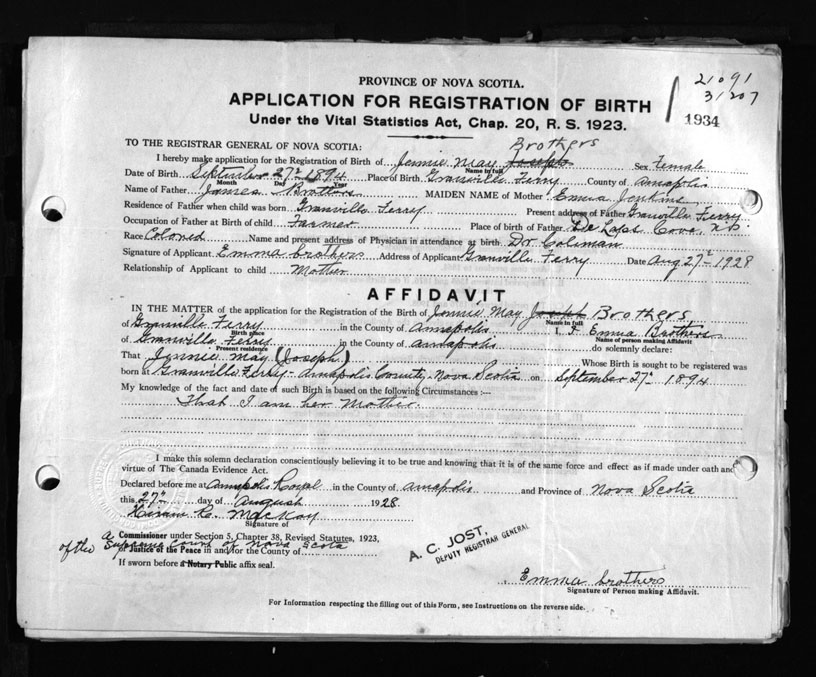 21091
31207
1934
PROVINCE OF NOVA SCOTIA.
APPLICATION FOR REGISTRATION OF BIRTH
Under the Vital Statistics Act, Chap. 20, R. S. 1923.
TO THE REGISTRAR GENERAL OF NOVA SCOTIA: Brothers
I hereby make application for the Registration of Birth of Jennie May Joseph Sex Female
Name in full
Date of Birth September 27th 1894 Place of Birth Granville Ferry County of Annapolis
Month Day Year
Name of Father James Brothers MAIDEN NAME of Mother Emma Jenkins
Residence of Father when child was born Granville Ferry Present address of Father Granville Ferry
Occupation of Father at Birth of child Farmer Place of birth of Father Cove, N.S.
Race Colored Name and present address of Physician in attendance at birth Dr. Coliman
Signature of Applicant Emma brothers Address of Applicant Granville Ferry Date Aug 27th 1928
Relationship of Applicant to child Mother
AFFIDAVIT
IN THE MATTER of the application for the Registration of the Birth of Jennie May Joseph Brothers
Name in full
of Granville Ferry in the County of Annapolis I, Emma Brothers
Birth place Name of person making Affidavit
of Granville Ferry in the County of annapolis do solemnly declare:
Present residence
That Jennie May (Joseph) Whose Birth is sought to be registered was
born at Granville Ferry - Annapolis County, Nova Scotia on September 27th 1894
My knowledge of the fact and date of such Birth is based on the following Circumstances :—
That I am her Mother.
I make this solemn declaration conscientiously believing it to be true and knowing that it is of the same force and effect as if made under oath and
virtue of The Canada Evidence Act.
Declared before me at Annapolis Royal in the County of annapolis and Province of Nova Scotia
this 27th day of August 1928
Hiram C. MacKay
Signature of
a Commissioner under Section 5, Chapter 38, Revised Statutes, 1923,
of the Supreme Court of Nova Scotia
or Justice of the Peace in and for the County of
If sworn before a Notary Public affix seal.
A. C. JOST,
DEPUTY REGISTRAR GENERAL
Emma brothers
Signature of Person making Affidavit.
For Information respecting the filling out of this Form, see Instructions on the reverse side.